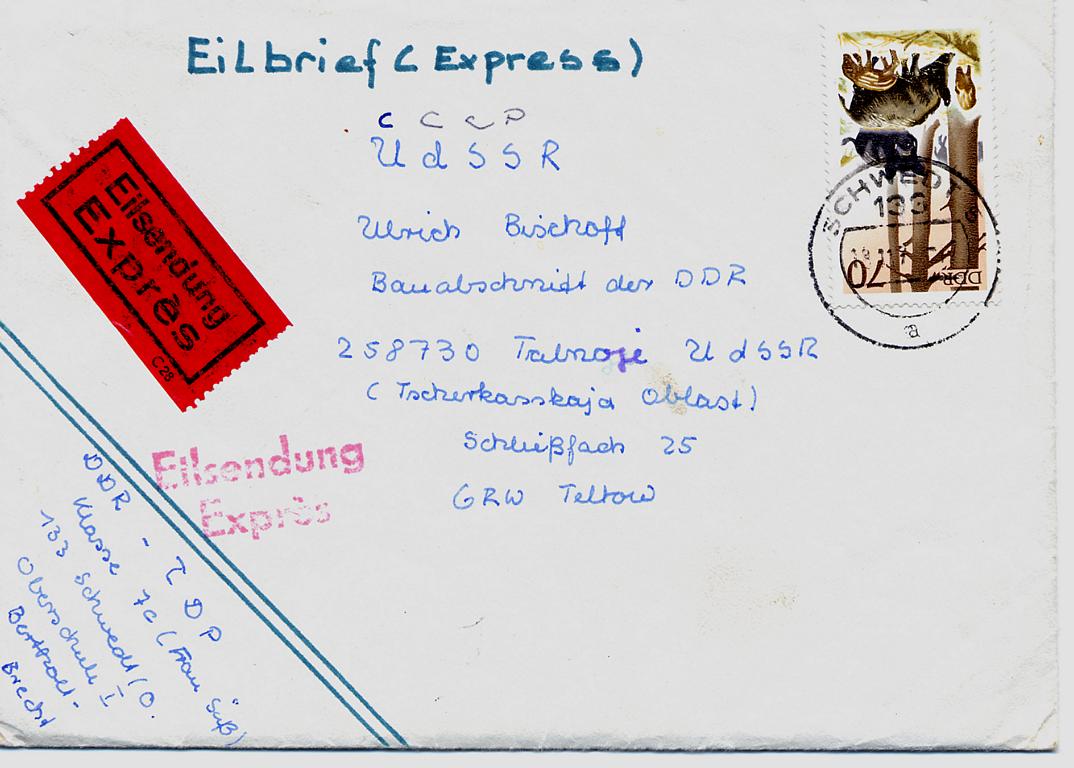 Eilbrief (Express)
C C C P
U d S S R
Ulrich Bischoff
Bauabschnitt der DDR
258730 Talnoje U d S S R
(Tscherkasskaja Oblast)
Schließfach 25
GRW Teltow
Eilsendung
Exprès
C 28
Eilsendung
Exprès
DDR - ГДР
Klasse 7c (Frau Süß)
133 Schwedt/O.
Oberschule I
Berthold-
Brecht
SCHWEDT
133
a
70
DDR